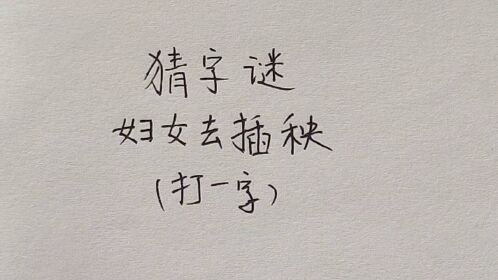 猜字谜
妇女去插秧
(打一字)